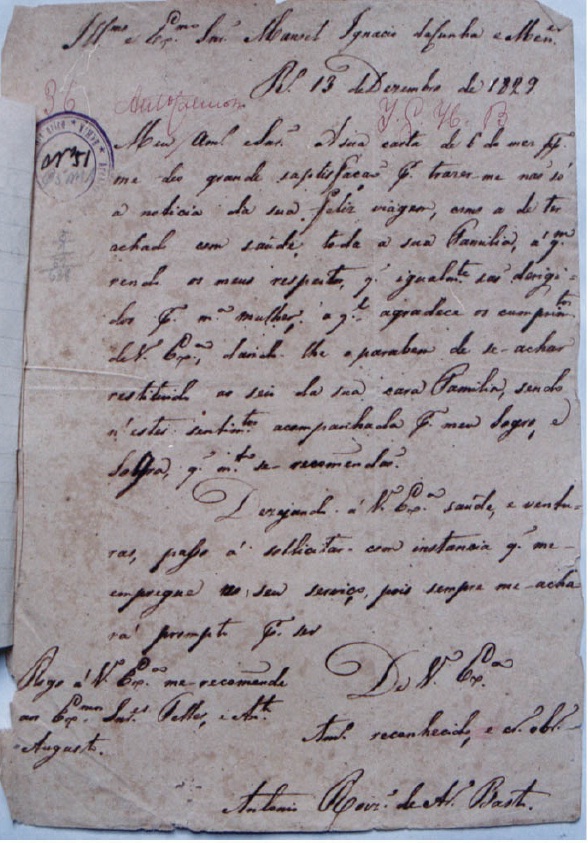 Illmo. e Exmo. Snr. Manoel Ignacio da Cunha e Menes.
Ro. 13 de Dezembro de 1829
36
Autographos
I. G. H. B
No 51
Meu Amo. e Snr. A sua carta de 6 do mes pp.
me deo grande sastisfação P. trazer-me não só
a noticia da sua feliz viagem, como a de ter
achado com saúde, toda a sua Familia, á qm.
rendo os meus respeitos, q. igualmte. são derigi
dos P. ma. mulher, a ql. agradece os cumprimtos.
de V. Exa., dando-lhe o parabem de se-achar
restituido ao seio da sua cara Familia, sendo
n'estes sentimtos. acompanhada P. meu Sogro, e
Sogra, q. mto. se-recomendão.
Dezejando á V. Exa. saúde, e ventu-
ras, passo á sollicitar com instancia q. me-
empregue no seu serviço, pois sempre me-acha
rá prompto P. ser
De V. Exa.
Rogo á V. Exa. me-recomende
aos Exmos. Snres. Feller, e Anto.
Augusto.
Amo. reconhecido, e Cro. obro.
Antonio Roiz. de Ao. Basto.